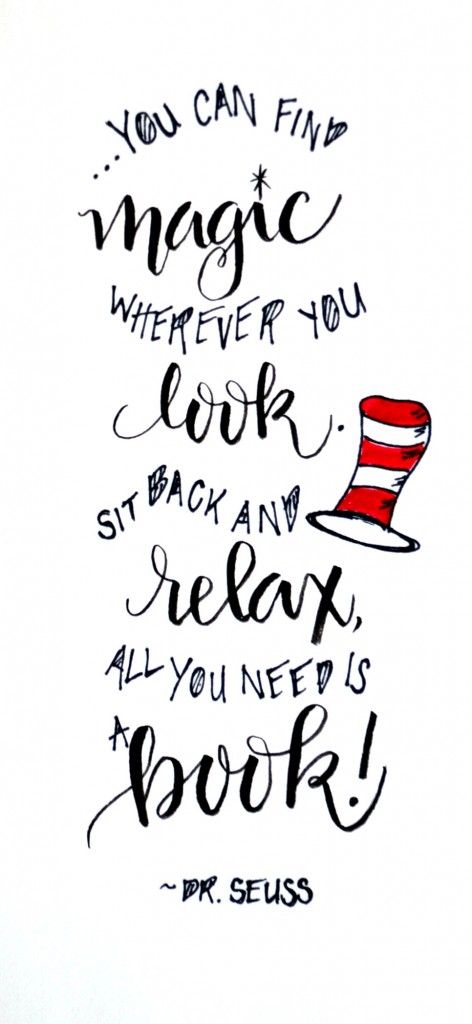 ...YOU CAN FIND
magic
WHEREVER YOU
look.
SIT BACK AND
relax,
ALL YOU NEED IS
A
book!
~DR. SEUSS